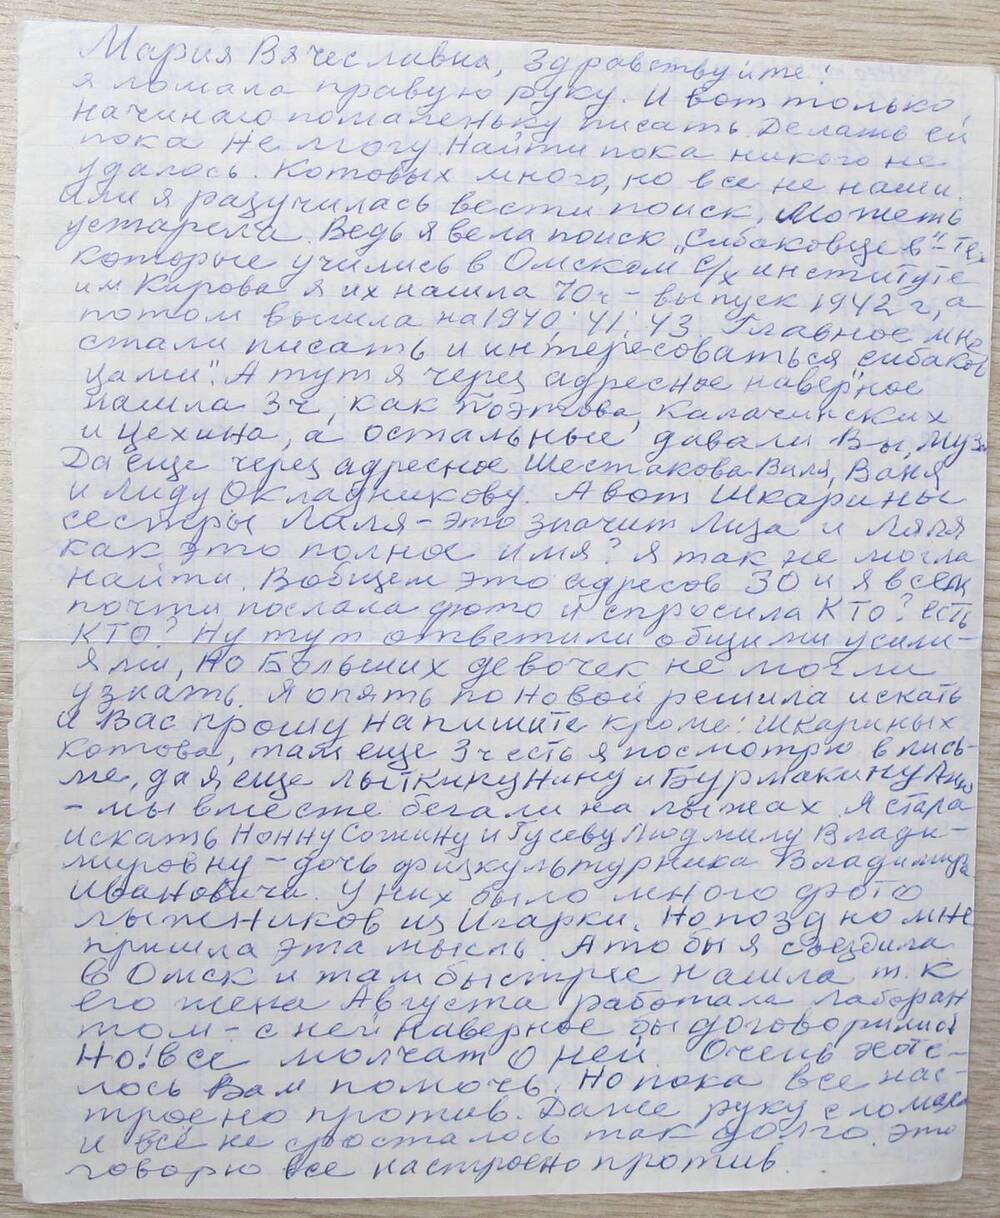 Мария Вячеславна, Здравствуйте!
я ломала правую руку. И вот только
начинаю помаленьку писать. Делать ей
пока не могу. Найти пока никого не
удалось. Котовых много, но все не наши.
Или я разучилась вести поиск. Можеть
устарела. Ведь я вела поиск „Сибаковцев" - тех
которые учились в Омском с/х институте
им Кирова я их нашла 70ч - выпуск 1942 г, а
потом вышла на 1940; 41; 43. Главное мне
стали писать и интересоваться „сибаков
цами". А тут я через адресное наверное
нашла 3ч, как Поэтова, Калачинских
и Цехина, а остальные давали Вы, Муза
Да еще через адресное Шестакова Валя, Ваня
и Лиду Окладникову. А вот Шкарины
сестры Лаля - это значит Лиза и Ляля
как это полное имя? Я так не могла
найти. Вобщем это адресов 30 и я всем
почти послала фото и спросила КТО? есть
КТО? Ну тут ответили общими усили-
ями, но Больших девочек не могли
узнать. Я опять по новой решила искать
и Вас прошу напишите кроме: Шкариных
Котова, там еще 3ч есть я посмотрю в пись-
ме, да я еще Лыткину Нину и Бурмакину Аню
- мы вместе бегали на лыжах. Я стара
искать Нонну Сожину и Гусеву Людмилу Влади-
мировну - дочь физкультурника Владимира
Ивановича. У них было много фото
лыжников из Игарки. Но поздно мне
пришла эта мысль. А то бы я съездила
в Омск и там быстрее нашла т.к
его жена Августа работала лаборан
том - с ней наверное бы договорились
Но! все молчат о ней. Очень хоте-
лось Вам помочь. Но пока все нас-
троено против. Даже руку сломала
и всё не срасталось так долго. Это
говорю все настроено против.